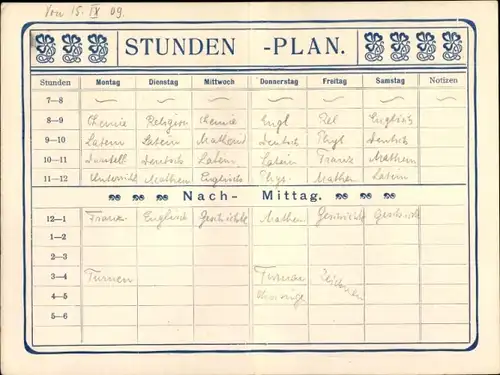 Von 15. IX 09.
STUNDEN -PLAN.
Stunden Montag Dienstag Mittwoch Donnerstag Freitag Samstag Notizen
7—8 ~ ~ ~ ~ ~ ~ ~
8—9 Chemie Religion Chemie Engl Rel Englisch
9—10 Latein Latein Mathem Deutsch Phys Deutsch
10—11 Deutsch Latein Latein Franz Mathem
11—12 Unterricht Mathem Englisch Phys. Mathem Latein
Nach- Mittag.
12—1 Franz Englisch Geschichte Mathem Geschichte Geschichte
1—2
2—3
3—4 Turnen Turnen Zeichnen
4—5
5—6